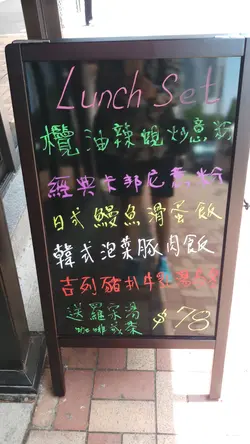 Lunch Set
欖油辣蜆炒意粉
經典卡邦尼意粉
日式鰻魚滑蛋飯
韓式泡菜豚肉飯
吉列豬扒牛
送羅宋湯
$78